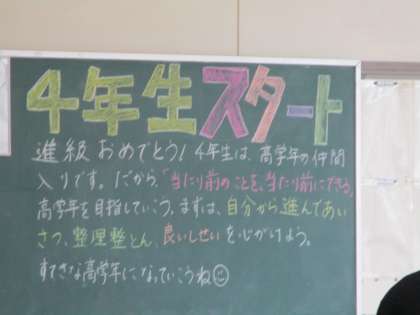 4年生スタート
進級おめでとう! 4年生は、高学年の仲間
入りです。だから、「当たり前のことを、当たり前にできる」
高学年を目指していこう。まずは、自分から進んであい
さつ、整理整とん、良いしせいを心がけよう。
すてきな高学年になっていこうね☺